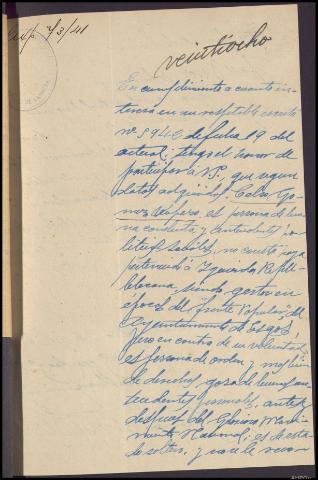 veintiocho
En cumplimiento a cuanto in-
teresa en su respetable escrito
nº 5940 de fecha 19 del
actual, tengo el honor de
participar a V.S. que segun
datos adquiridos, Gómez
es persona de bue-
na conducta y antecedentes po-
liticos
perteneció a Izquierda Repu-
blicana siendo gestor en
época del "frente Popular", del
Ayuntamiento de
pero en contra de su voluntad
es persona de orden y mas bien
de derechas, goza de buenos an-
tecedentes morales, antes y
despues del Glorioso Movi-
miento Nacional; es de esta-
do soltero, y no se le